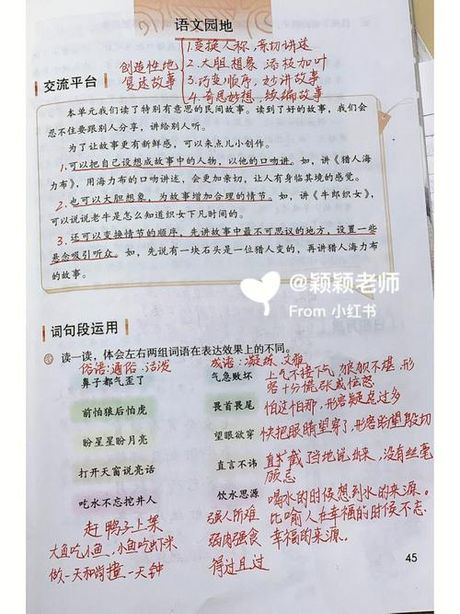 语文园地
1.变换人称，亲切讲述
创造性地 2.大胆想象，添枝加叶
复述故事 3.巧变顺序，妙讲故事
4.奇思妙想，续编故事
交流平台
本单元我们读了特别有意思的民间故事。读到了好的故事，我们会
忍不住要跟别人分享，讲给别人听。
为了让故事更有新鲜感，可以来点儿小创作。
1.可以把自己设想成故事中的人物，以他的口吻讲。如，讲《猎人海
力布》，用海力布的口吻讲述，会更加亲切，让人有身临其境的感觉。
2.也可以大胆想象，为故事增加合理的情节。如，讲《牛郎织女》，可
以说说老牛是怎么知道织女下凡时间的。
3.还可以变换情节的顺序，先讲故事中最不可思议的地方，设置一些
悬念吸引听众。如，先说有一块石头是一位猎人变的，再讲猎人海力布
的故事。
@颖颖老师
From 小红书
词句段运用
读一读，体会左右两组词语在表达效果上的不同。
俗语：通俗、活泼 成语：凝练、文雅
鼻子都气歪了 气急败坏 上气不接下气，狼狈不堪，形
容十分慌张或恼怒
前怕狼后怕虎 畏首畏尾 怕这怕那，形容疑虑过多
盼星星盼月亮 望眼欲穿 快把眼睛望穿了，形容盼望殷切
打开天窗说亮话 直言不讳 直截了当地说出来，没有丝毫
顾忌
吃水不忘挖井人 饮水思源 喝水的时候想到水的来源。
赶鸭子上架 强人所难 比喻人在幸福的时候不忘
大鱼吃小鱼，小鱼吃虾米 弱肉强食 幸福的来源。
做一天和尚撞一天钟 得过且过
45